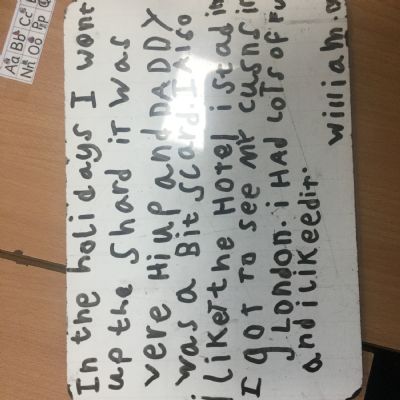 In the holidays I wont
up the Shard it was
vere Hiup and DADDY
was a Bit Scard. I Also
i liket the Hotel i stad in
I got to see my cusns in
London. i HAD LOTS OF Fu
and i likeedit.
william.
Aa Bb Cc
Nn Oo Pp